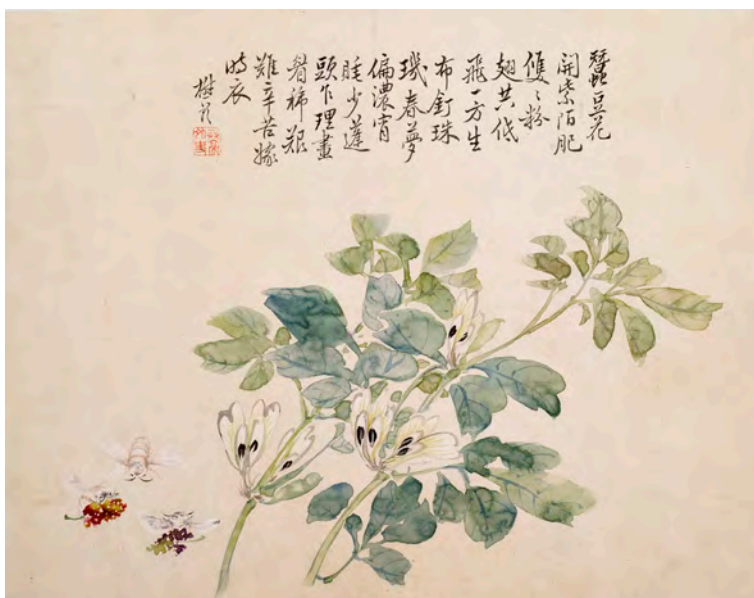 蠶豆花
開紫陌肥
雙〻粉
翅共低
飛一方生
布釘珠
璣春夢
偏濃宵
睡少蓬
頭乍理畫
眉稀艱
難辛苦嫁
時衣